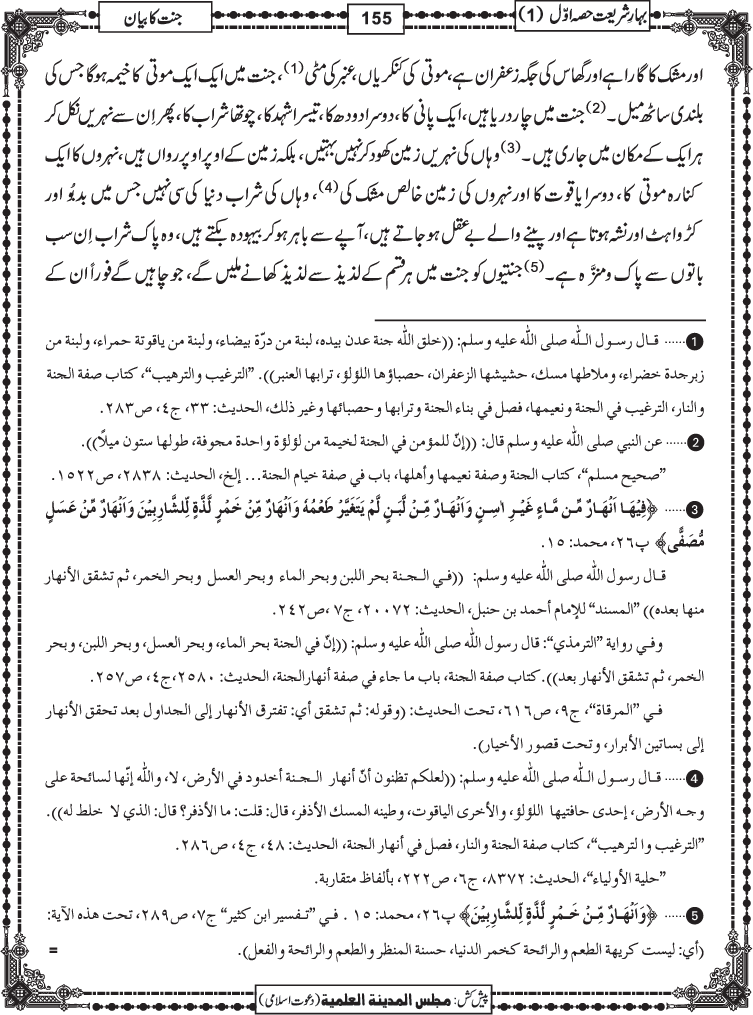 بہارِ شریعت حصہ اوّل (1)
155
جنت کا بیان
اور مشک کا گارا ہے اور گھاس کی جگہ زعفران ہے، موتی کی کنکریاں، عنبر کی مٹی(1)، جنت میں ایک ایک موتی کا خیمہ ہوگا جس کی
بلندی ساٹھ میل۔(2) جنت میں چار دریا ہیں، ایک پانی کا، دوسرا دودھ کا، تیسرا شہد کا، چوتھا شراب کا، پھر اِن سے نہریں نکل کر
ہر ایک کے مکان میں جاری ہیں۔(3) وہاں کی نہریں زمین کھود کر نہیں بہتیں، بلکہ زمین کے اوپر اوپر رواں ہیں، نہروں کا ایک
کنارہ موتی کا، دوسرا یاقوت کا اور نہروں کی زمین خالص مشک کی(4)، وہاں کی شراب دنیا کی سی نہیں جس میں بدبُو اور
کڑواہٹ اور نشہ ہوتا ہے اور پینے والے بے عقل ہو جاتے ہیں، آپے سے باہر ہو کر بیہودہ بکتے ہیں، وہ پاک شراب اِن سب
باتوں سے پاک و منزَّہ ہے۔(5) جنتیوں کو جنت میں ہر قسم کے لذیذ سے لذیذ کھانے ملیں گے، جو چاہیں گے فوراً ان کے
1...... قـال رسـول الـلّٰه صلى اللّٰه عليه وسلم: ((خلق اللّٰه جنة عدن بيده، لبنة من درّة بيضاء، ولبنة من ياقوتة حمراء، ولبنة من
زبرجدة خضراء، وملاطها مسك، حشيشها الزعفران، حصباؤها اللؤلؤ، ترابها العنبر)). ”الترغيب والترهيب“، كتاب صفة الجنة
والنار، الترغيب في الجنة ونعيمها، فصل في بناء الجنة وترابها وحصبائها وغير ذلك، الحديث: ٣٣، ج٤، ص٢٨٣.
2...... عن النبي صلى اللّٰه عليه وسلم قال: ((إنّ للمؤمن في الجنة لخيمة من لؤلؤة واحدة مجوفة، طولها ستون ميلًا)).
”صحيح مسلم“، كتاب الجنة وصفة نعيمها وأهلها، باب في صفة خيام الجنة... إلخ، الحديث: ٢٨٣٨، ص١٥٢٢.
3...... ﴿فِيْهَا اَنْهَارٌ مِّنْ مَّاءٍ غَيْرِ اٰسِنٍ وَاَنْهَارٌ مِّنْ لَّبَنٍ لَّمْ يَتَغَيَّرْ طَعْمُهٗ وَاَنْهَارٌ مِّنْ خَمْرٍ لَّذَّةٍ لِّلشَّارِبِيْنَ وَاَنْهَارٌ مِّنْ عَسَلٍ
مُّصَفًّى﴾ پ٢٦، محمد: ١٥.
قـال رسول اللّٰه صلى اللّٰه عليه وسلم: ((فـي الـجـنة بحر اللبن وبحر الماء وبحر العسل وبحر الخمر، ثم تشقق الأنهار
منها بعده)) ”المسند“ للإمام أحمد بن حنبل، الحديث: ٢٠٠٧٢، ج٧، ص٢٤٢.
وفـي رواية ”الترمذي“: قال رسول اللّٰه صلى اللّٰه عليه وسلم: ((إنّ في الجنة بحر الماء، وبحر العسل، وبحر اللبن، وبحر
الخمر، ثم تشقق الأنهار بعد)). كتاب صفة الجنة، باب ما جاء في صفة أنهارالجنة، الحديث: ٢٥٨٠، ج٤، ص٢٥٧.
فـي ”المرقاة“، ج٩، ص٦١٦، تحت الحديث: (وقوله: ثم تشقق أي: تفترق الأنهار إلى الجداول بعد تحقق الأنهار
إلى بساتين الأبرار، وتحت قصور الأخيار).
4...... قـال رسـول الـلّٰه صلى اللّٰه عليه وسلم: ((لعلكم تظنون أنّ أنهار الـجـنة أخدود في الأرض، لا، واللّٰه إنّها لسائحة على
وجـه الأرض، إحدى حافتيها اللؤلؤ، والأخرى الياقوت، وطينه المسك الأذفر، قال: قلت: ما الأذفر؟ قال: الذي لا خلط له)).
”الترغيب والترهيب“، كتاب صفة الجنة والنار، فصل في أنهار الجنة، الحديث: ٤٨، ج٤، ص٢٨٦.
”حلية الأولياء“، الحديث: ٨٣٧٢، ج٦، ص٢٢٢، بألفاظ متقاربة.
5...... ﴿وَاَنْهَارٌ مِّنْ خَـمْرٍ لَّذَّةٍ لِّلشَّارِبِيْنَ﴾ پ٢٦، محمد: ١٥ . فـي ”تـفسير ابن كثير“ ج٧، ص٢٨٩، تحت هذه الآية:
(أي: ليست كريهة الطعم والرائحة كخمر الدنيا، حسنة المنظر والطعم والرائحة والفعل). =
پیش کش: مجلس المدینة العلمیة (دعوتِ اسلامی)